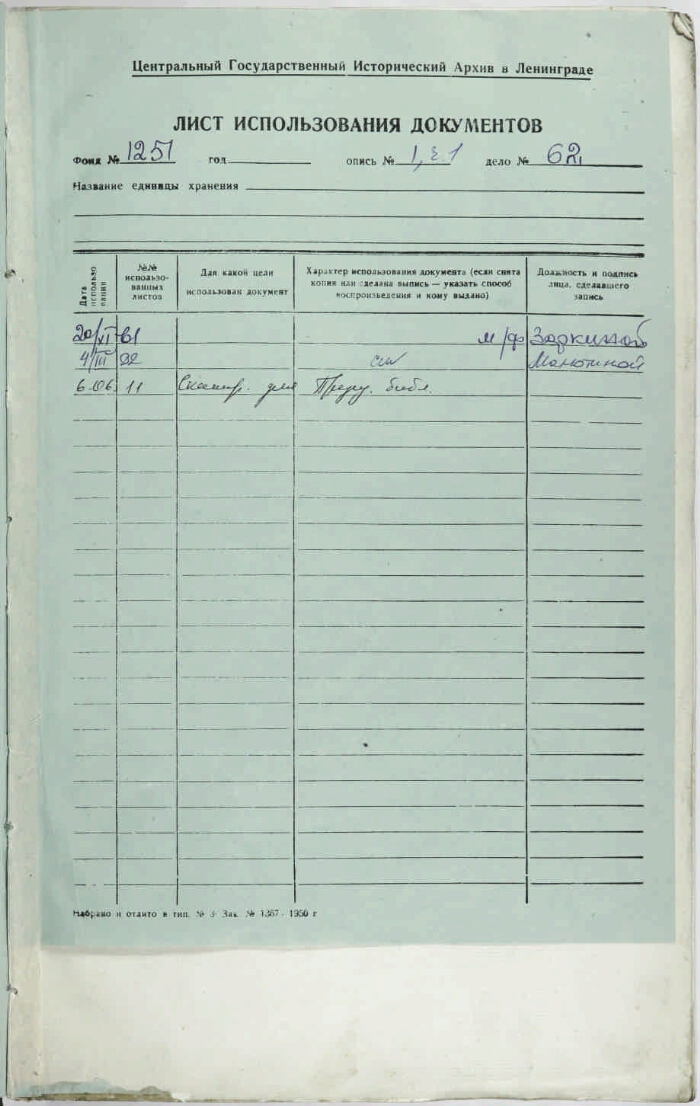 Центральный Государственный Исторический Архив в Ленинграде
ЛИСТ ИСПОЛЬЗОВАНИЯ ДОКУМЕНТОВ
Фонд № 1251 год опись № 1, ч.1 дело № 62
Название единицы хранения
Дата использования
№№ использованных листов
Для какой цели использован документ
Характер использования документа (если снята копия или сделана выпись — указать способ воспроизведения и кому выдано)
Должность и подпись лица, сделавшего запись
20/VI 61 м/ф
4/III 22
6.06. 11 Сканир. для През. библ.
Набрано и отлито в тип. № 3 Зак. № 1367 - 1950 г